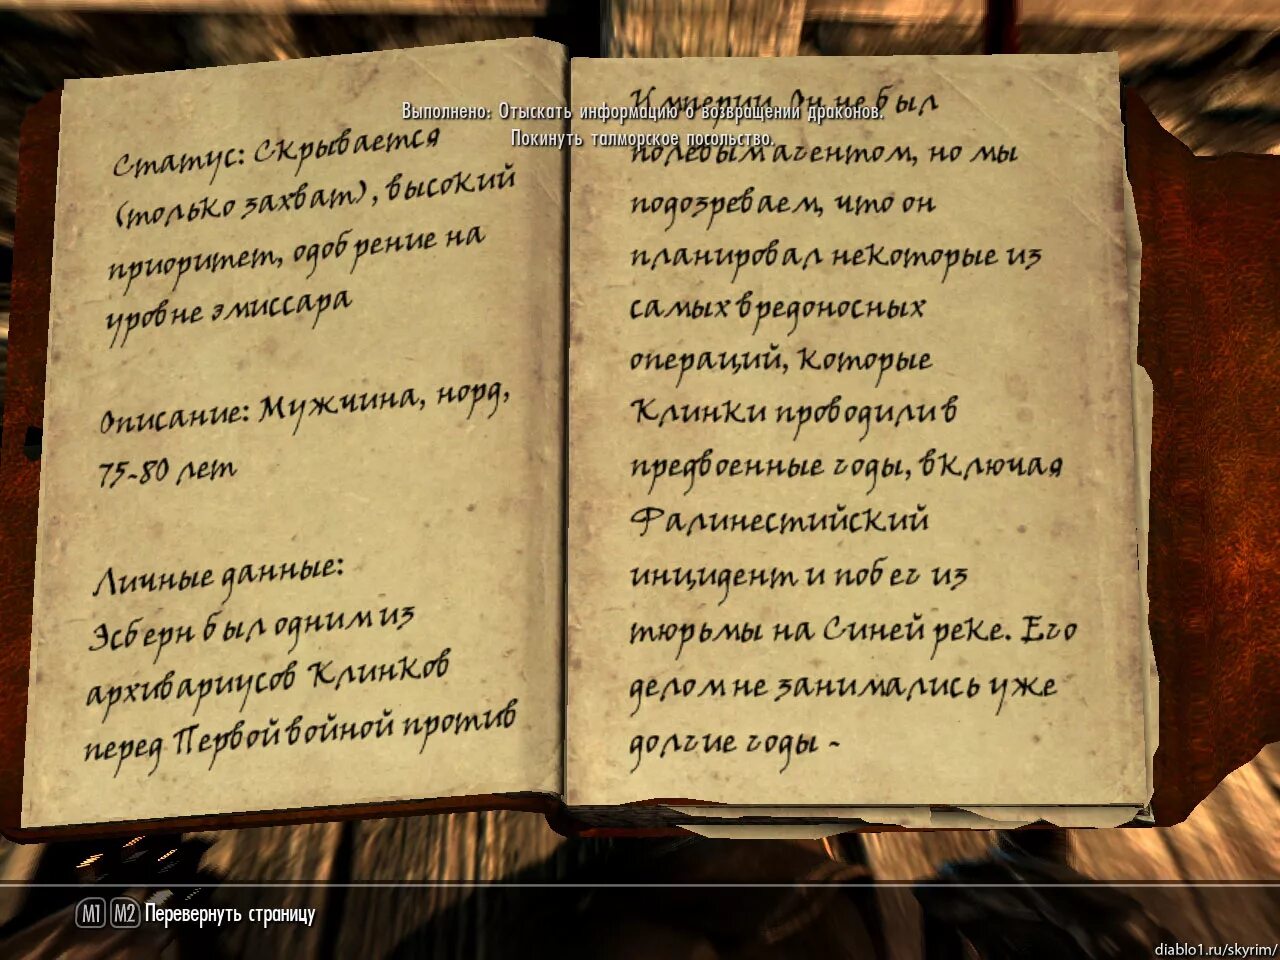 Выполнено: Отыскать информацию о возвращении драконов.
Покинуть талморское посольство.
Статус: Скрывается
(только захват), высокий
приоритет, одобрение на
уровне эмиссара
Описание: Мужчина, норд,
75-80 лет
Личные данные:
Эсберн был одним из
архивариусов Клинков
перед Первой войной против
Империи. Он не был
полевым агентом, но мы
подозреваем, что он
планировал некоторые из
самых вредоносных
операций, которые
Клинки проводили в
предвоенные годы, включая
Фалинестийский
инцидент и побег из
тюрьмы на Синей реке. Его
делом не занимались уже
долгие годы -
M1 M2 Перевернуть страницу
diablo1.ru/skyrim/